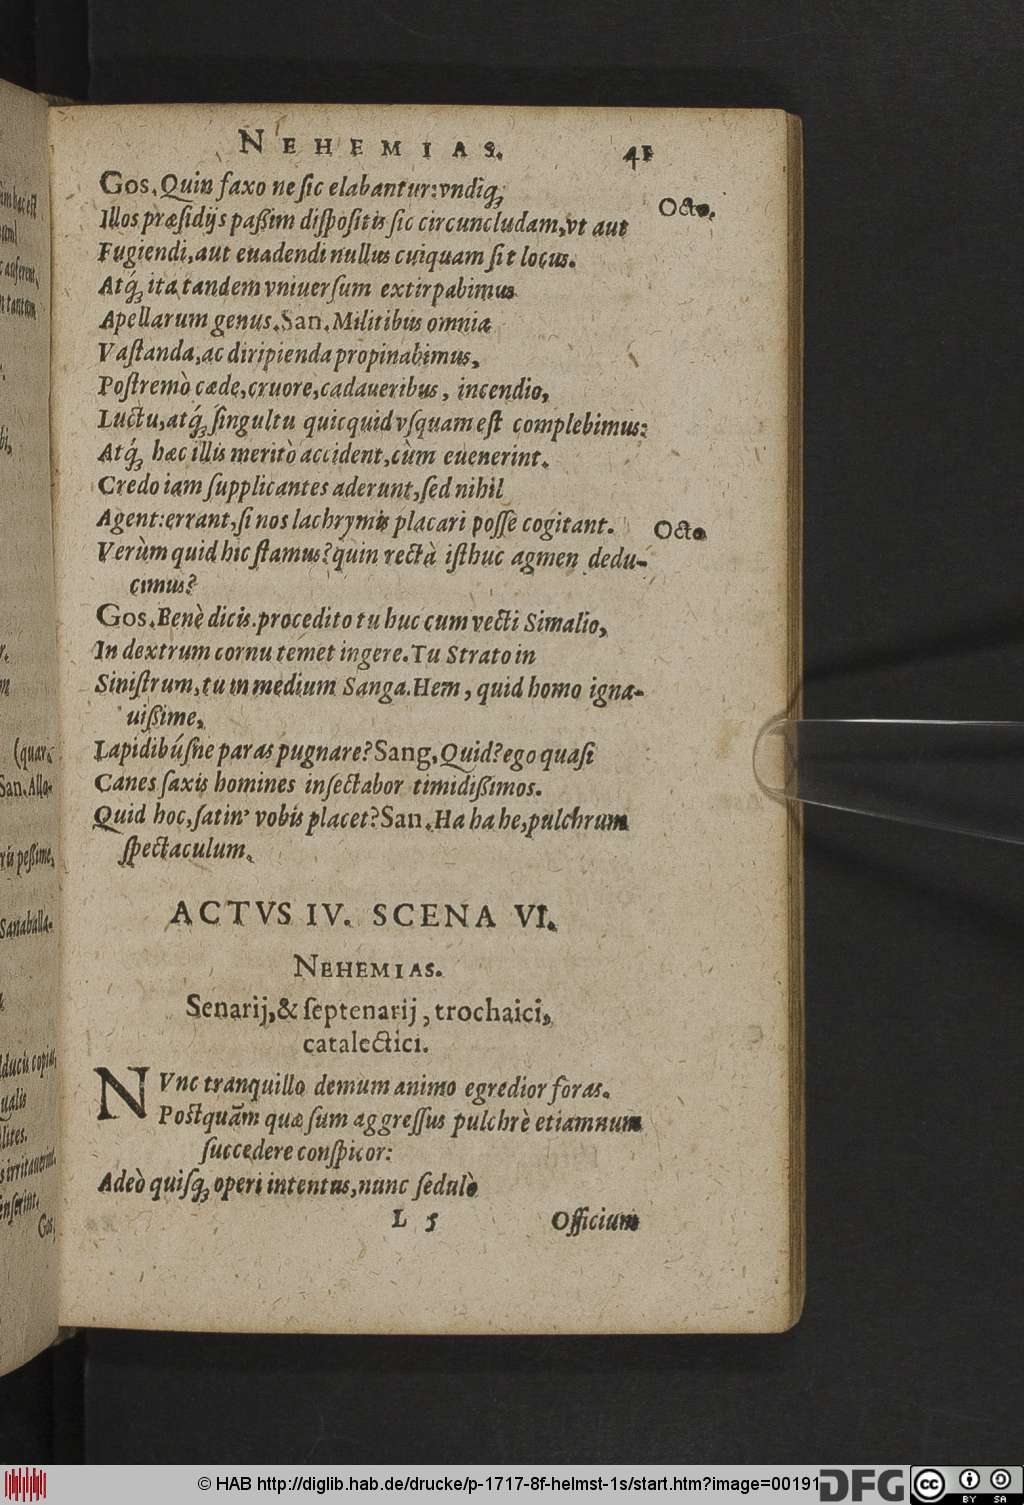 NEHEMIAS. 41
Gos. Quin faxo ne sic elabantur: vndiq́;
Octo.
Illos præsidijs paßim dispositis sic circuncludam, vt aut
Fugiendi, aut euadendi nullus cuiquam sit locus.
Atq́; ita tandem vniuersum extirpabimus
Apellarum genus. San. Militibus omnia
Vastanda, ac diripienda propinabimus,
Postremò cæde, cruore, cadaueribus, incendio,
Luctu, atq́; singultu quicquid vsquam est complebimus:
Atq́; hæc illis meritò accident, cùm euenerint.
Credo iam supplicantes aderunt, sed nihil
Agent: errant, si nos lachrymis placari posse cogitant.
Octo
Verùm quid hic stamus? quin rectà isthuc agmen dedu-
cimus?
Gos. Benè dicis. procedito tu huc cum vecti Simalio,
In dextrum cornu temet ingere. Tu Strato in
Sinistrum, tu in medium Sanga. Hem, quid homo igna-
uißime,
Lapidibúsne paras pugnare? Sang, Quid? ego quasi
Canes saxis homines insectabor timidißimos.
Quid hoc, satin' vobis placet? San. Ha ha he, pulchrum
spectaculum.
ACTVS IV. SCENA VI.
NEHEMIAS.
Senarij, & septenarij, trochaici,
catalectici.
NVnc tranquillo demum animo egredior foras.
Postquãm quæ sum aggressus pulchrè etiamnum
succedere conspicor:
Adeò quisq; operi intentus, nunc sedulò
L 5 Officium
(quar,
San. Allo-
ris peßime,
Sanaballa-
Gos,
© HAB http://diglib.hab.de/drucke/p-1717-8f-helmst-1s/start.htm?image=00191
DFG
cc BY SA